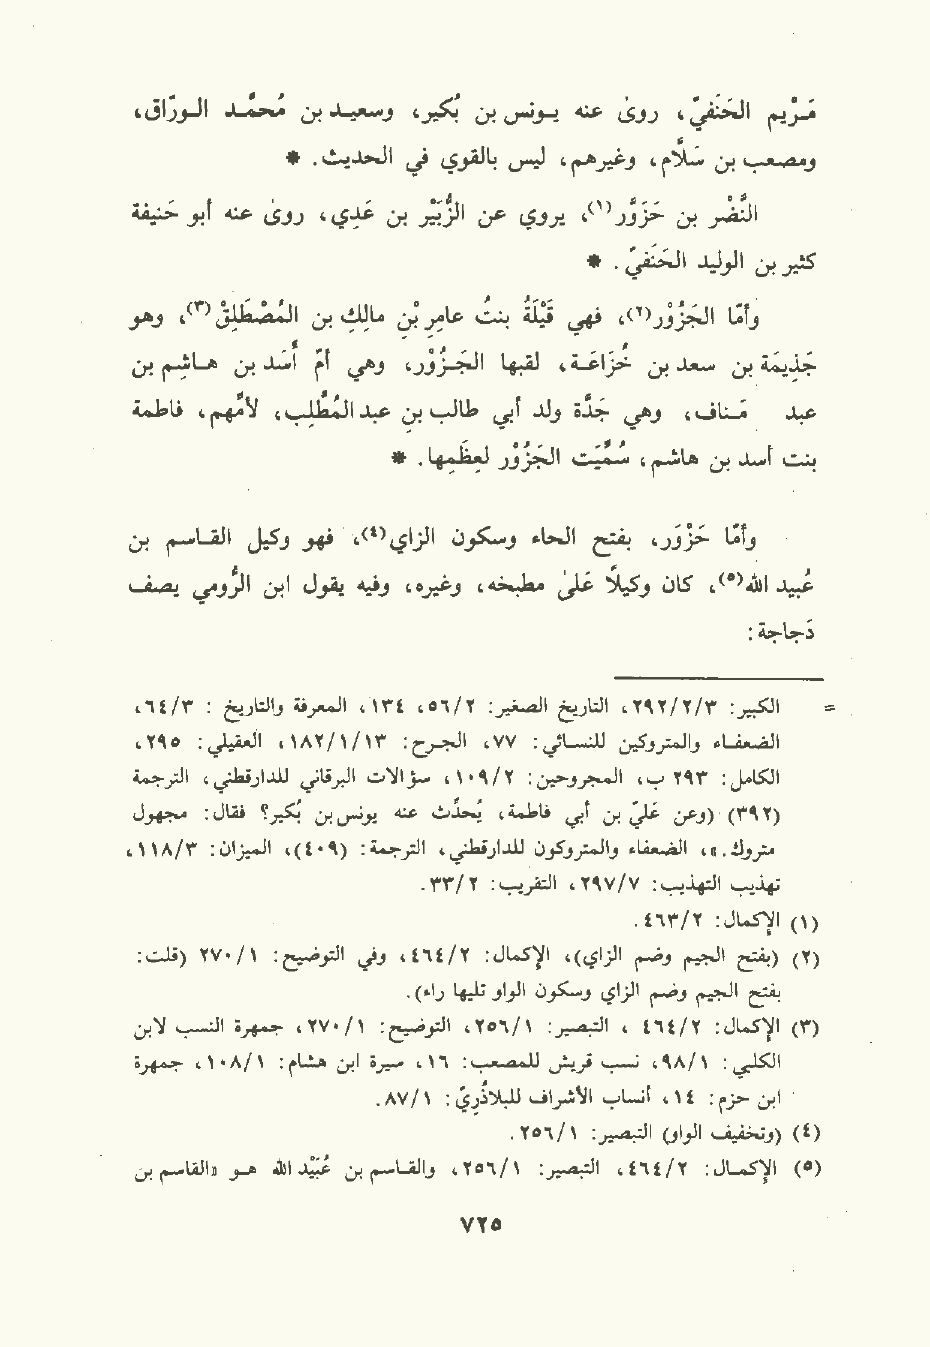 مَرْيم الحَنفيّ، روىٰ عنه يونس بن بُكير، وسعيد بن مُحمَّد الورّاق،
ومصعب بن سَلّام، وغيرهم، ليس بالقوي في الحديث. *
النَّضْر بن حَزَوَّر(١)، يروي عن الزُّبَيْر بن عَدِي، وروىٰ عنه أبو حَنيفة
كثير بن الوليد الحَنَفيّ. *
وأمّا الجَزُوْر(٢)، فهي قَيْلَةُ بنتُ عامِر بْنِ مالِكِ بن المُصْطَلِقْ(٣)، وهو
جَذِيمَة بن سعد بن خُزاعَة، لقبها الجَزُوْر، وهي أمّ أسَد بن هاشِم بن
عبد مَناف، وهي جَدّة ولد أبي طالب بن عبد المُطَّلِب، لأمّهم، فاطمة
بنت أسد بن هاشم، سُمِّيَت الجَزُوْر لعِظَمِها. *
وأمّا حَزْوَر، بفتح الحاء وسكون الزاي(٤)، فهو وكيل القاسم بن
عُبيد الله(٥)، كان وكيلًا علىٰ مطبخه، وغيره، وفيه يقول ابن الرُّومي يصف
دَجاجة:
= الكبير: ٢٩٢/٢/٣، التاريخ الصغير: ٥٦/٢، ١٣٤، المعرفة والتاريخ : ٦٤/٣،
الضعفاء والمتروكين للنسائي: ٧٧، الجرح: ١٨٢/١/١٣، العقيلي: ٢٩٥،
الكامل: ٢٩٣ ب، المجروحين: ١٠٩/٢، سؤالات البرقاني للدارقطني، الترجمة
(٣٩٢) (وعن عَليّ بن أبي فاطمة، يُحدِّث عنه يونس بن بُكير؟ فقال: مجهول
متروك.»، الضعفاء والمتروكون للدارقطني، الترجمة: (٤٠٩)، الميزان: ١١٨/٣،
تهذيب التهذيب: ٢٩٧/٧، التقريب: ٣٣/٢.
(١) الإكمال: ٤٦٣/٢.
(٢) (بفتح الجيم وضم الزاي)، الإكمال: ٤٦٤/٢، وفي التوضيح: ٢٧٠/١ (قلت:
بفتح الجيم وضم الزاي وسكون الواو تليها راء).
(٣) الإكمال: ٤٦٤/٢ ، التبصير: ٢٥٦/١، التوضيح: ٢٧٠/١، جمهرة النسب لابن
الكلبي: ٩٨/١، نسب قريش للمصعب: ١٦، سيرة ابن هشام: ١٠٨/١، جمهرة
ابن حزم: ١٤، أنساب الأشراف للبلاذُرِيّ: ٨٧/١.
(٤) (وتخفيف الواو) التبصير: ٢٥٦/١.
(٥) الإكمال: ٤٦٤/٢، التبصير: ٢٥٦/١، والقاسم بن عُبَيْد الله هو «القاسم بن
٧٢٥